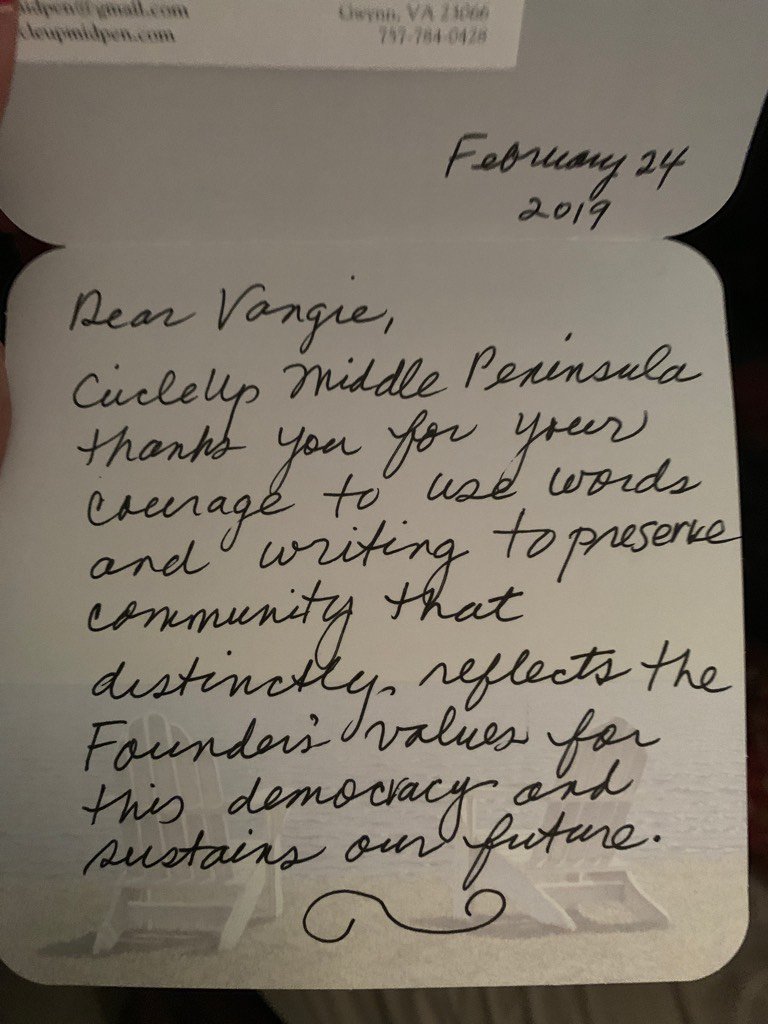 idpen@gmail.com
Gwynn, VA 23066
cleupmidpen.com
757-784-0428
February 24
2019
Dear Vangie,
CircleUp Middle Peninsula
thanks you for your
courage to use words
and writing to preserve
community that
distinctly reflects the
Founder's values for
this democracy and
sustains our future.